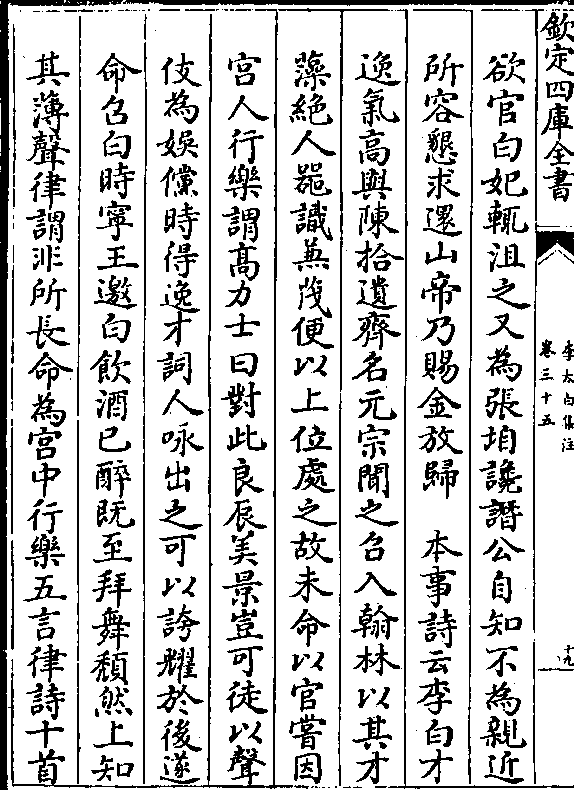 欽定四庫全書
李太白集注
卷三十五
十九
欲官白妃輒沮之又為張垍讒譖公自知不為親近
所容懇求還山帝乃賜金放歸 本事詩云李白才
逸氣高與陳拾遺齊名元宗聞之召入翰林以其才
藻絶人器識兼茂便以上位處之故未命以官嘗因
宫人行樂謂髙力士曰對此良辰美景豈可徒以聲
伎為娛儻時得逸才詞人咏出之可以誇耀於後遂
命召白時寧王邀白飲酒已醉既至拜舞頽然上知
其薄聲律謂非所長命為宮中行樂五言律詩十首